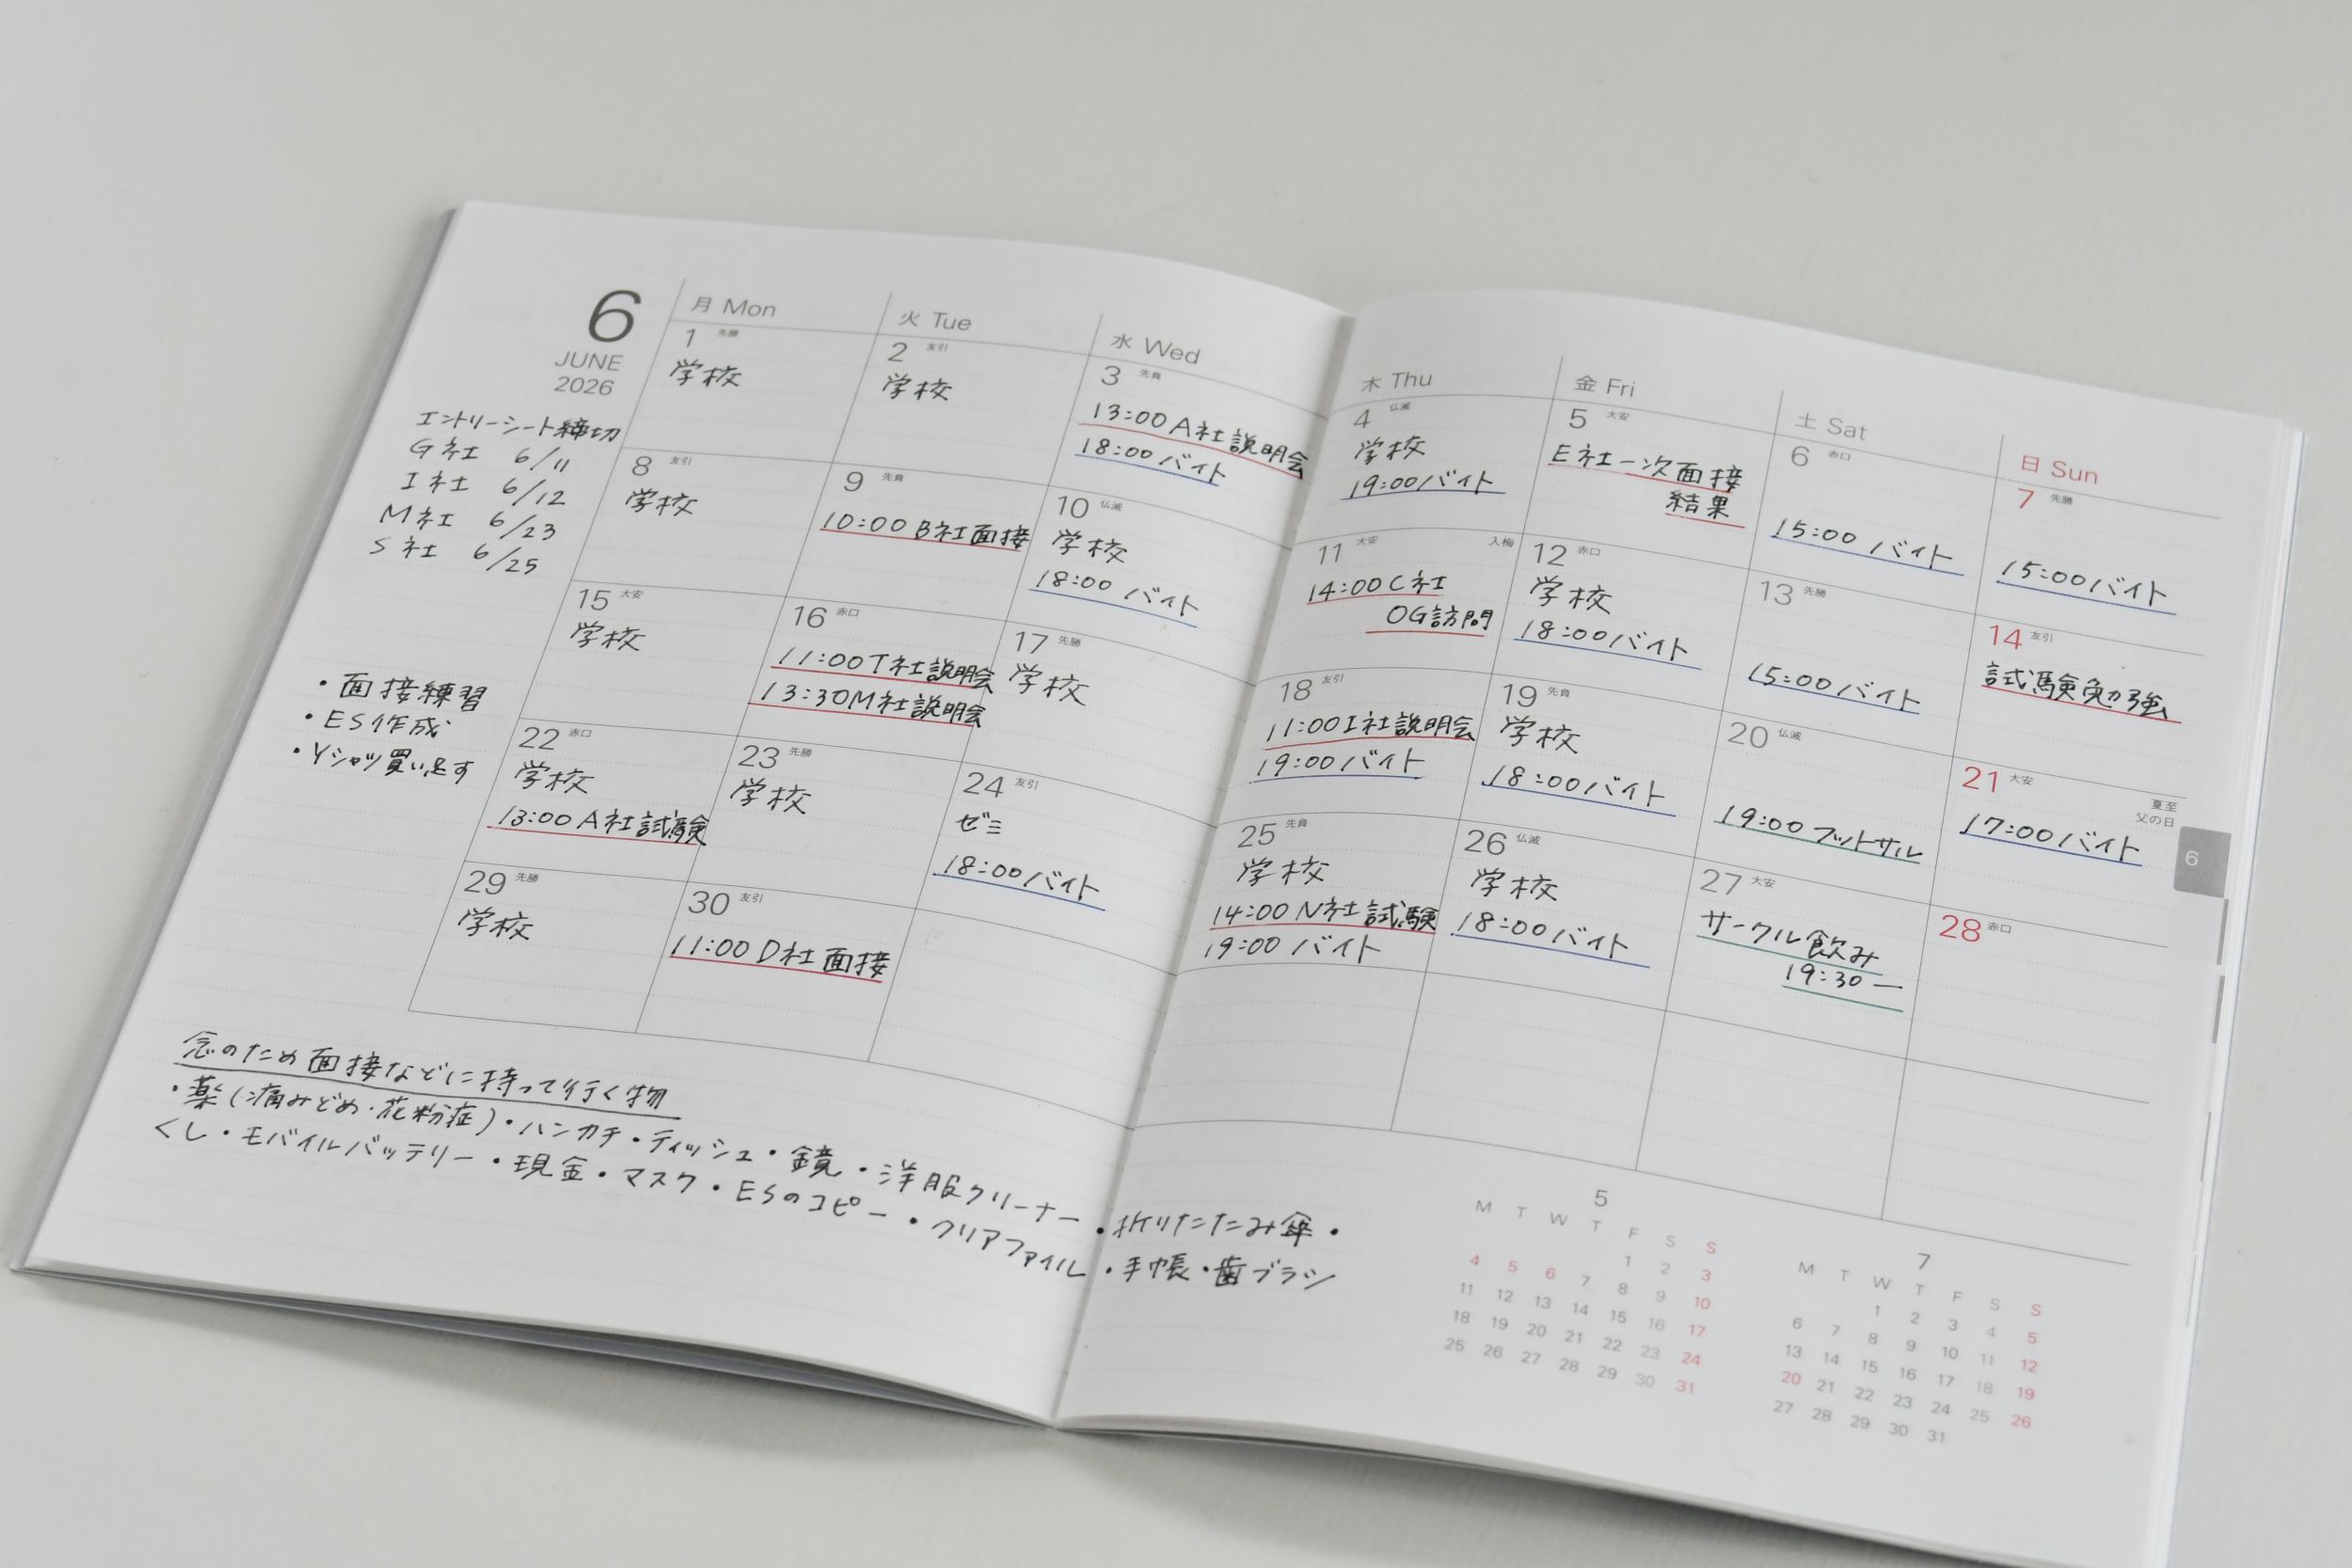 6
JUNE
2026
月 Mon
火 Tue
水 Wed
木 Thu
金 Fri
土 Sat
日 Sun
エントリーシート締切
G社 6/11
I社 6/12
M社 6/23
S社 6/25
・面接練習
・ES作成
・Yシャツ買い足す
1 先勝
学校
2 友引
学校
3 先負
13:00 A社説明会
18:00 バイト
4 仏滅
学校
19:00バイト
5 大安
E社一次面接
結果
6 赤口
15:00 バイト
7 先勝
15:00バイト
8 友引
学校
9 先負
10:00 B社面接
10 仏滅
学校
18:00 バイト
11 大安 入梅
14:00 C社
OG訪問
12 赤口
学校
18:00バイト
13 先勝
15:00バイト
14 友引
試験勉強
15 大安
学校
16 赤口
11:00T社説明会
13:30M社説明会
17 先勝
学校
18 友引
11:00I社説明会
19:00バイト
19 先負
学校
18:00バイト
20 仏滅
19:00 フットサル
21 大安
夏至
父の日
17:00バイト
22 赤口
学校
13:00 A社試験
23 先勝
学校
24 友引
ゼミ
18:00バイト
25 先負
学校
14:00 N社試験
19:00 バイト
26 仏滅
学校
18:00バイト
27 大安
サークル飲み
19:30 ー
28 赤口
29 先勝
学校
30 友引
11:00 D社面接
6
念のため面接などに持って行く物
・薬(痛みどめ・花粉症)・ハンカチ・ティッシュ・鏡・洋服クリーナー・折りたたみ傘・
くし・モバイルバッテリー・現金・マスク・ESのコピー・クリアファイル・手帳・歯ブラシ
5
M T W T F S S
1 2 3
4 5 6 7 8 9 10
11 12 13 14 15 16 17
18 19 20 21 22 23 24
25 26 27 28 29 30 31
7
M T W T F S S
1 2 3 4 5
6 7 8 9 10 11 12
13 14 15 16 17 18 19
20 21 22 23 24 25 26
27 28 29 30 31